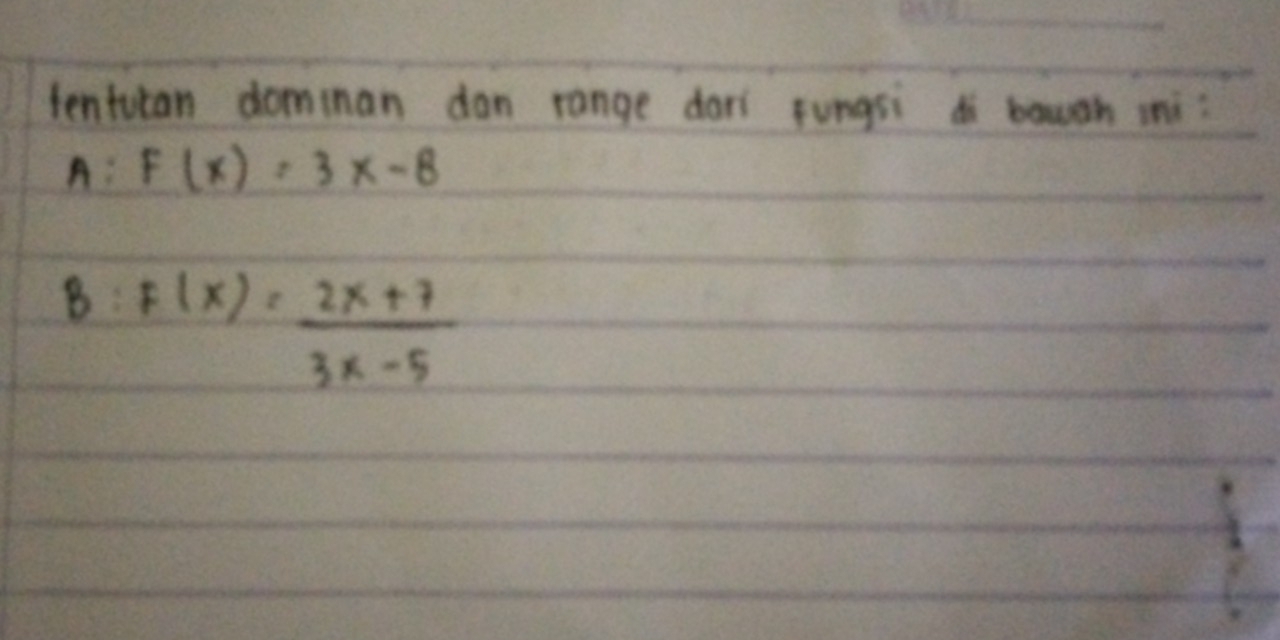 tentukan dominan dan range dari fungsi di bawah ini :
A : F (x) = 3x - 8
B : F (x) = 2x + 7
3x - 5